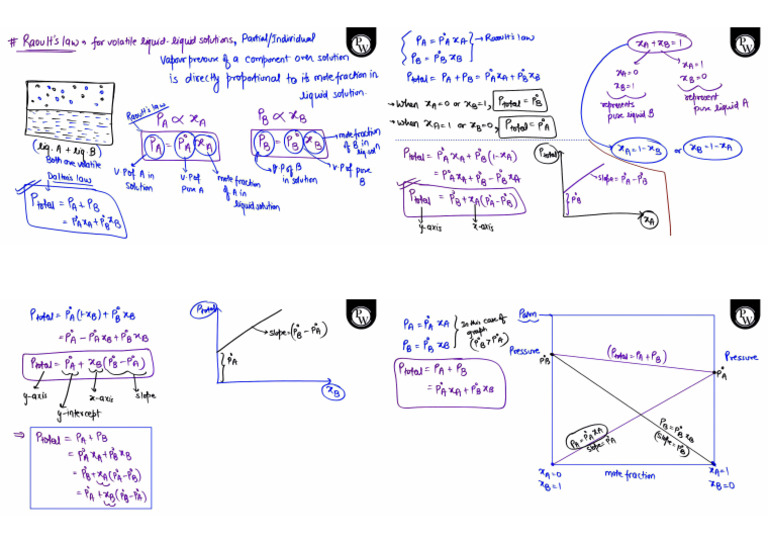 # Raoult's law → for volatile liquid-liquid solutions, Partial/Individual
Vapour pressure of a component over solution
is directly proportional to its mole fraction in
liquid solution.
Raoult's law
P_A ∝ x_A
P_B ∝ x_B
P_A = P°_A x_A
P_B = P°_B x_B
mole fraction of B in liq. soln
(liq. A + liq. B)
Both are volatile
V.P of A in solution
V.P of pure A
mole fraction of A in liquid solution
V.P of B in solution
V.P of pure B
Dalton's law
P_total = P_A + P_B
= P°_A x_A + P°_B x_B
P_A = P°_A x_A
P_B = P°_B x_B
→ Raoult's law
P_total = P_A + P_B = P°_A x_A + P°_B x_B
→ When x_A = 0 or x_B = 1, P_total = P°_B
→ When x_A = 1 or x_B = 0, P_total = P°_A
x_A + x_B = 1
x_A = 0
x_B = 1
represents pure liquid B
x_A = 1
x_B = 0
represent pure liquid A
x_A = 1 - x_B or x_B = 1 - x_A
P_total = P°_A x_A + P°_B (1 - x_A)
= P°_A x_A + P°_B - P°_B x_A
P_total = P°_B + x_A (P°_A - P°_B)
y-axis
x-axis
P_total
slope = P°_A - P°_B
P°_B
x_A
P_total = P°_A (1 - x_B) + P°_B x_B
= P°_A - P°_A x_B + P°_B x_B
P_total = P°_A + x_B (P°_B - P°_A)
y-axis
y-intercept
x-axis
slope
⇒ P_total = P_A + P_B
= P°_A x_A + P°_B x_B
= P°_B + x_A (P°_A - P°_B)
= P°_A + x_B (P°_B - P°_A)
P_total
slope = (P°_B - P°_A)
P°_A
x_B
P_A = P°_A x_A
P_B = P°_B x_B
In this case of graph
(P°_B > P°_A)
P_total = P_A + P_B
= P°_A x_A + P°_B x_B
Pressure
P°_B
(P_total = P_A + P_B)
Pressure
P°_A
P_A = P°_A x_A
slope = P°_A
P_B = P°_B x_B
(slope = P°_B)
x_A = 0
x_B = 1
mole fraction
x_A = 1
x_B = 0
PW
PW
PW
PW